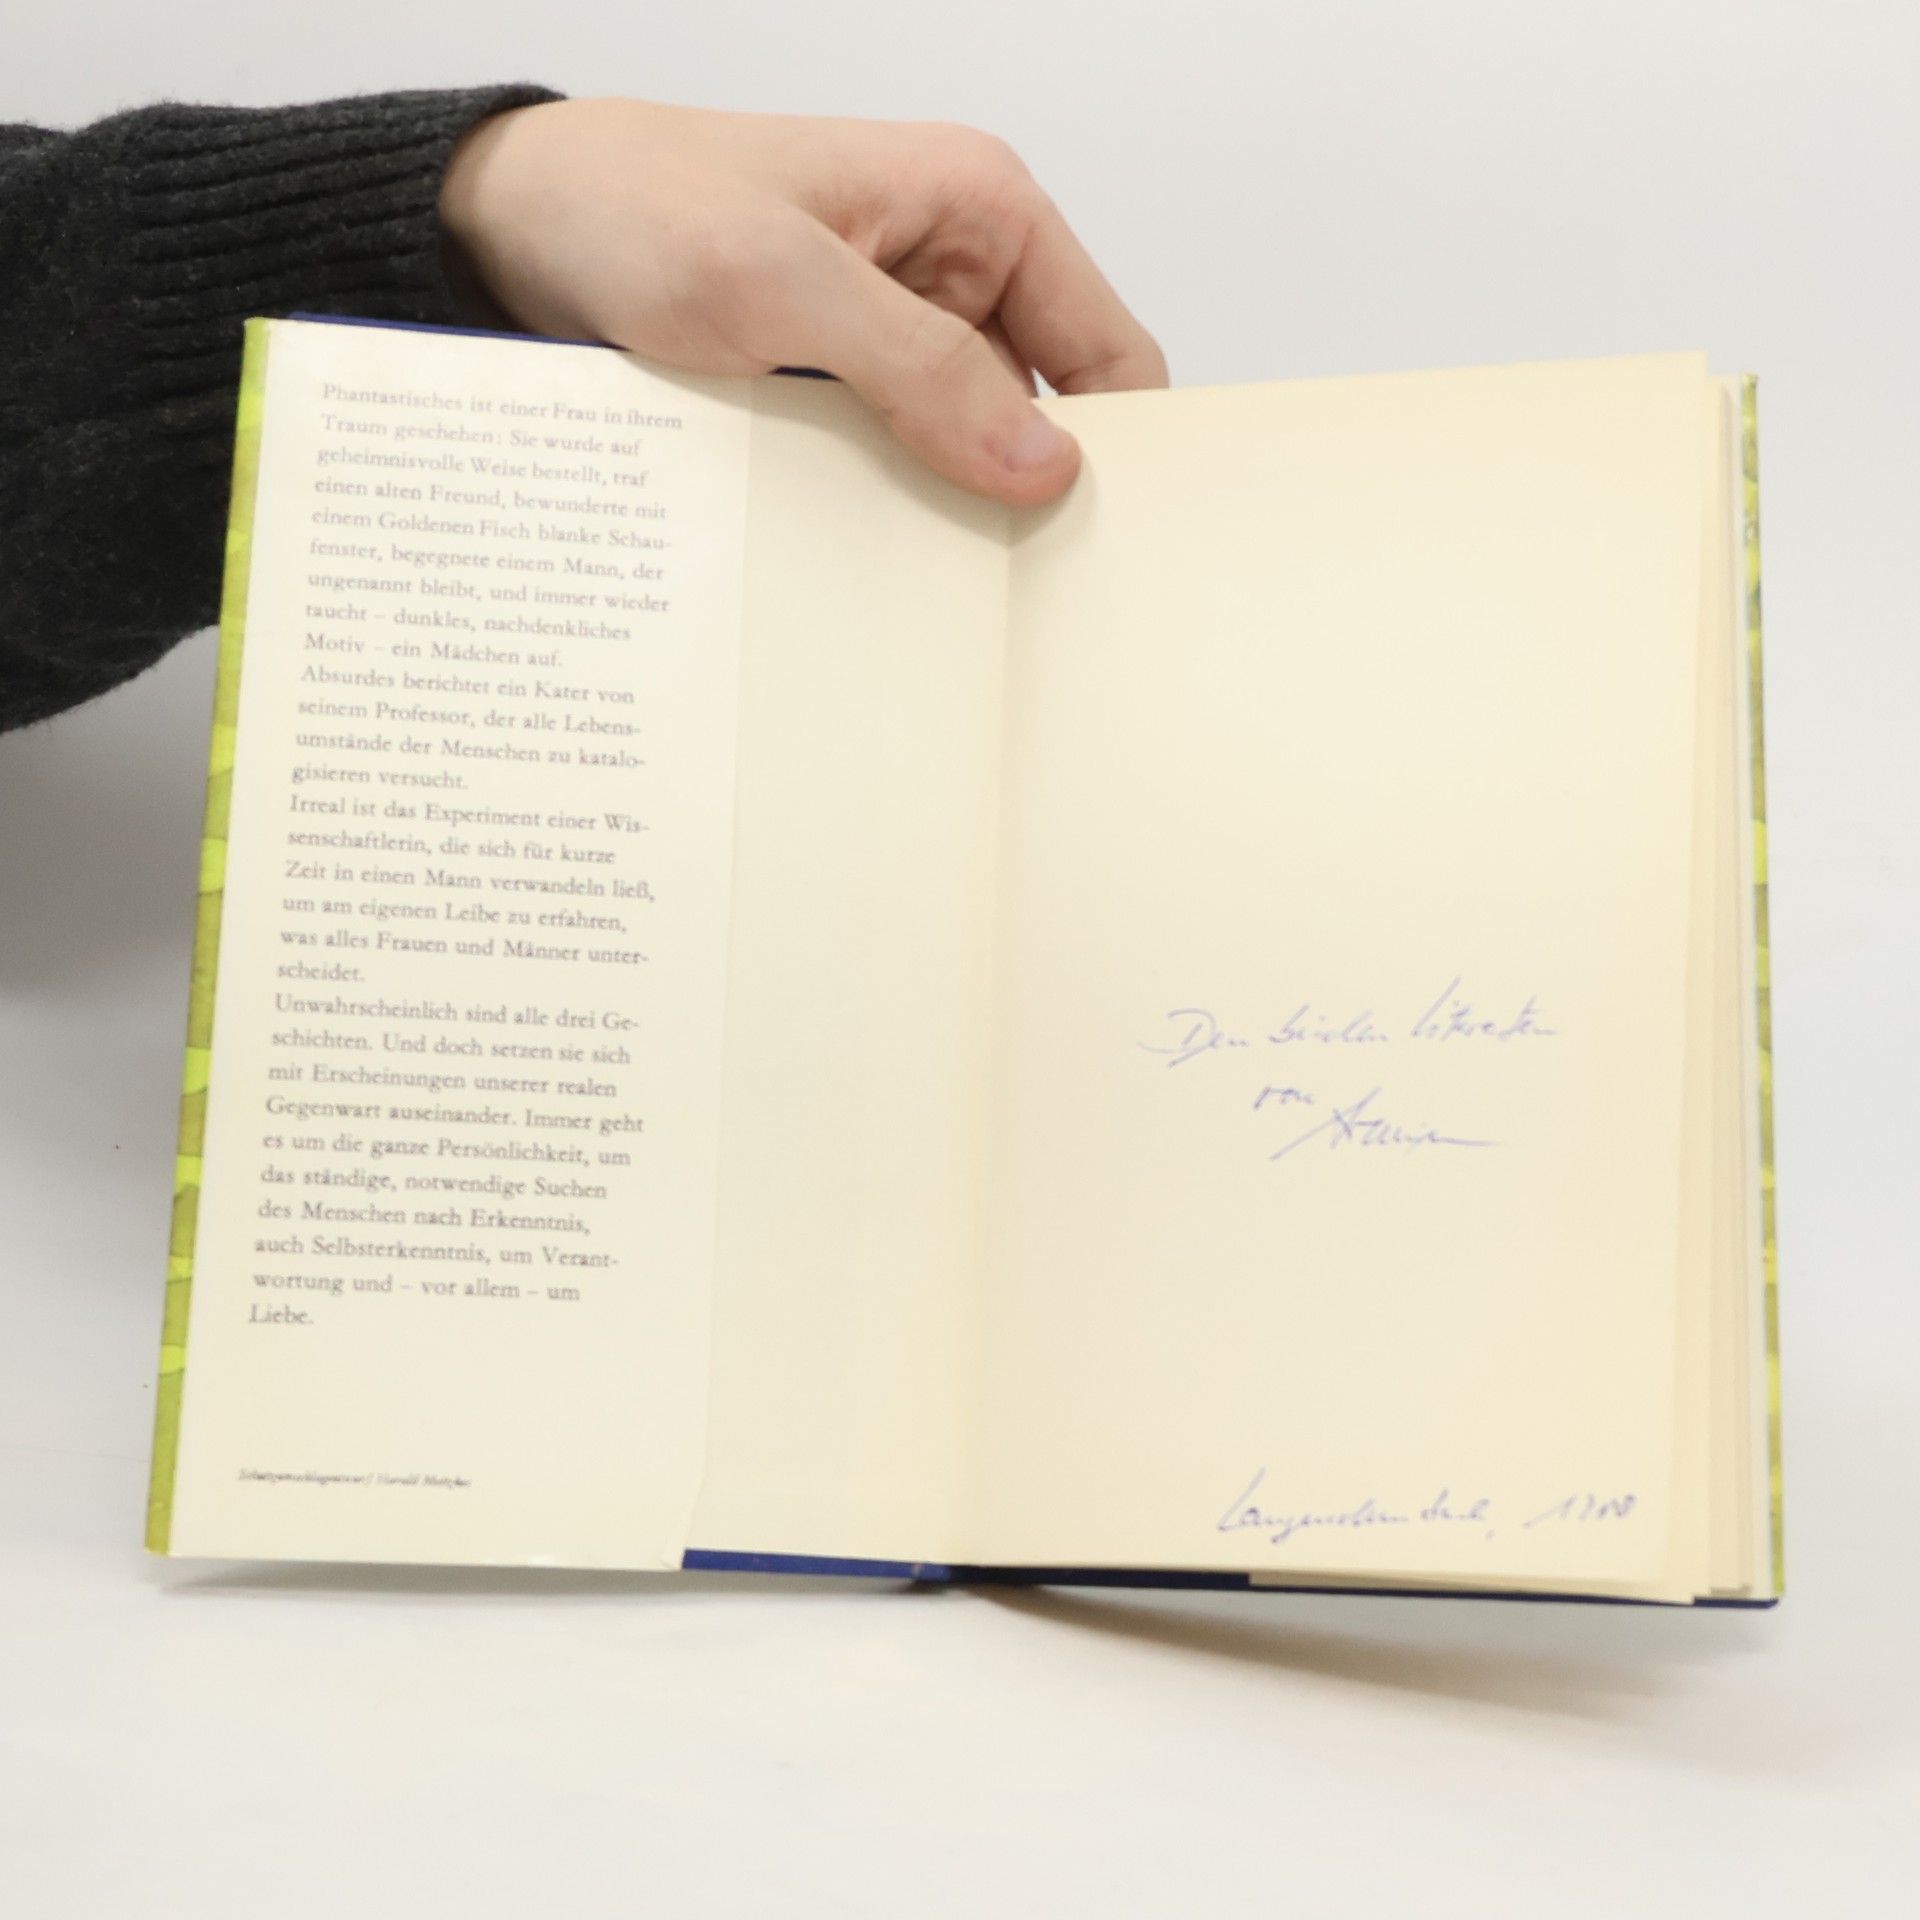 Phantastisches ist einer Frau in ihrem
Traum geschehen: Sie wurde auf
geheimnisvolle Weise bestellt, traf
einen alten Freund, bewunderte mit
einem Goldenen Fisch blanke Schau-
fenster, begegnete einem Mann, der
ungenannt bleibt, und immer wieder
taucht – dunkles, nachdenkliches
Motiv – ein Mädchen auf.
Absurdes berichtet ein Kater von
seinem Professor, der alle Lebens-
umstände der Menschen zu katalo-
gisieren versucht.
Irreal ist das Experiment einer Wis-
senschaftlerin, die sich für kurze
Zeit in einen Mann verwandeln ließ,
um am eigenen Leibe zu erfahren,
was alles Frauen und Männer unter-
scheidet.
Unwahrscheinlich sind alle drei Ge-
schichten. Und doch setzen sie sich
mit Erscheinungen unserer realen
Gegenwart auseinander. Immer geht
es um die ganze Persönlichkeit, um
das ständige, notwendige Suchen
des Menschen nach Erkenntnis,
auch Selbsterkenntnis, um Verant-
wortung und – vor allem – um
Liebe.
Schutzumschlagentwurf Harald Metzkes
Den beiden Literaten
von